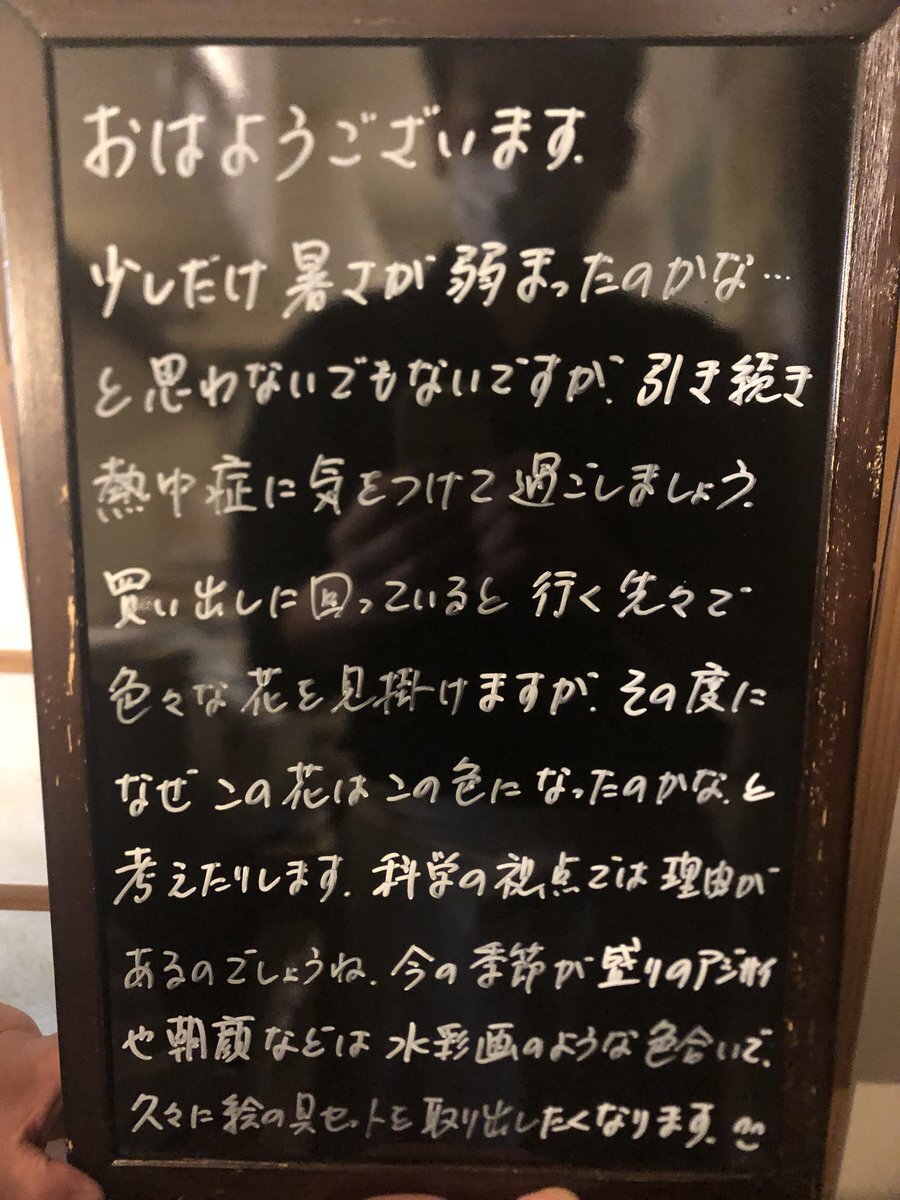 おはようございます.
少しだけ 暑さが 弱まったのかな…
と思わないでもないですが、引き続き
熱中症に気をつけて過ごしましょう.
買い出しに回っていると 行く先々で
色々な花を見掛けますが、その度に
なぜ この花はこの色になったのかな、と
考えたりします. 科学の視点では理由が
あるのでしょうね. 今の季節が盛りのアジサイ
や朝顔などは 水彩画のような色合いで、
久々に絵の具セットを取り出したくなります.